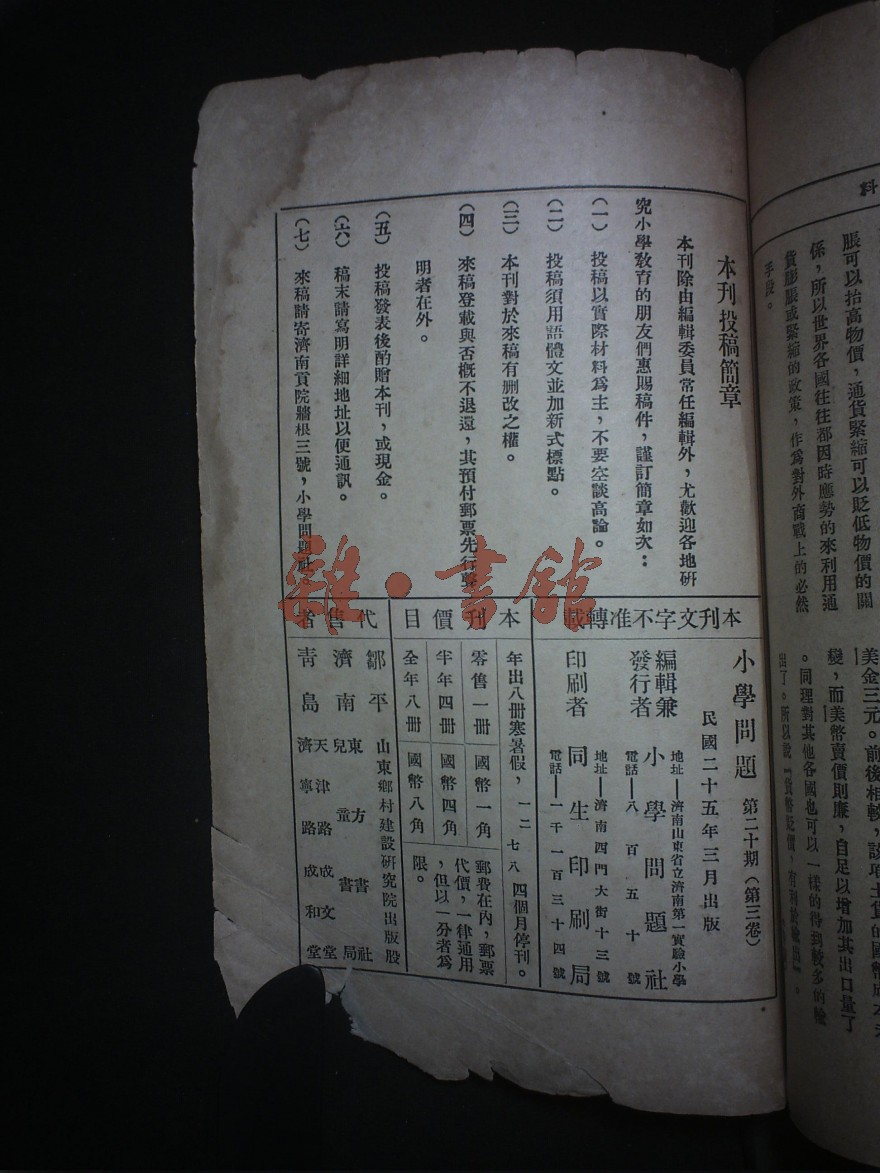 料
脹可以抬高物價，通貨緊縮可以貶低物價的關
係，所以世界各國往往都因時應勢的來利用通
貨膨脹或緊縮的政策，作爲對外商戰上的必然
手段。
美金三元。前後相較，該項土貨的國幣成本未
變，而美幣賣價則廉，自足以增加其出口量了
。同理對其他各國也可以一樣的得到較多的輸
本刊投稿簡章
本刊除由編輯委員常任編輯外，尤歡迎各地研
究小學敎育的朋友們惠賜稿件，謹訂簡章如次：
（一）投稿以實際材料爲主，不要空談高論。
（二）投稿須用語體文並加新式標點。
（三）本刊對於來稿有刪改之權。
（四）來稿登載與否概不退還，其預付郵票先行聲
明者在外。
（五）投稿發表後酌贈本刊，或現金。
（六）稿末請寫明詳細地址以便通訊。
（七）來稿請寄濟南貢院牆根三號，小學問題社。
本刊文字不准轉載
小學問題 第二十期（第三卷）
民國二十五年三月出版
編輯兼發行者 小學問題社
地址—濟南山東省立濟南第一實驗小學
電話—八百五十號
印刷者 同生印刷局
地址—濟南四門大街十三號
電話—一千一百三十四號
本刊價目
年出八册寒暑假，一二七八四個月停刊。
零售一册 國幣一角
半年四册 國幣四角
全年八册 國幣八角
郵費在內，郵票
代價，一律通用
，但以一分者爲
限。
代售者
鄒平 山東鄉村建設研究院出版股
濟南 東方書社
兒童書局
青島 天津路成文堂
濟寧路成和堂
雜·書館